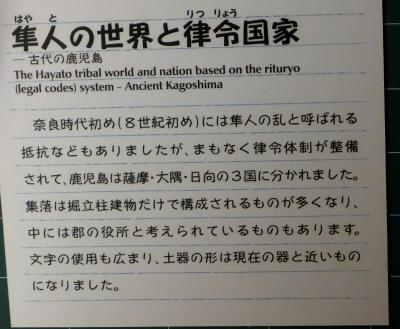 はや と りつ りょう
隼人の世界と律令国家
—古代の鹿児島
The Hayato tribal world and nation based on the rituryo
(legal codes) system – Ancient Kagoshima
奈良時代初め(8世紀初め)には隼人の乱と呼ばれる
抵抗などもありましたが、まもなく律令体制が整備
されて、鹿児島は薩摩・大隅・日向の3国に分かれました。
集落は掘立柱建物だけで構成されるものが多くなり、
中には郡の役所と考えられているものもあります。
文字の使用も広まり、土器の形は現在の器と近いもの
になりました。